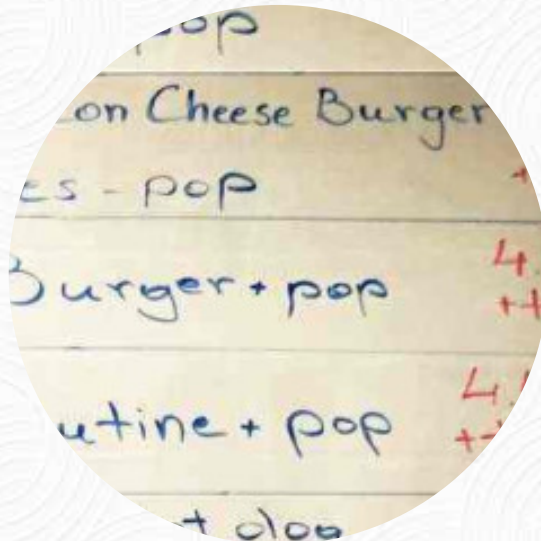 pop
on Cheese Burger
es - pop +
Burger + pop 4.
++
utine + pop 4.
++
t dog